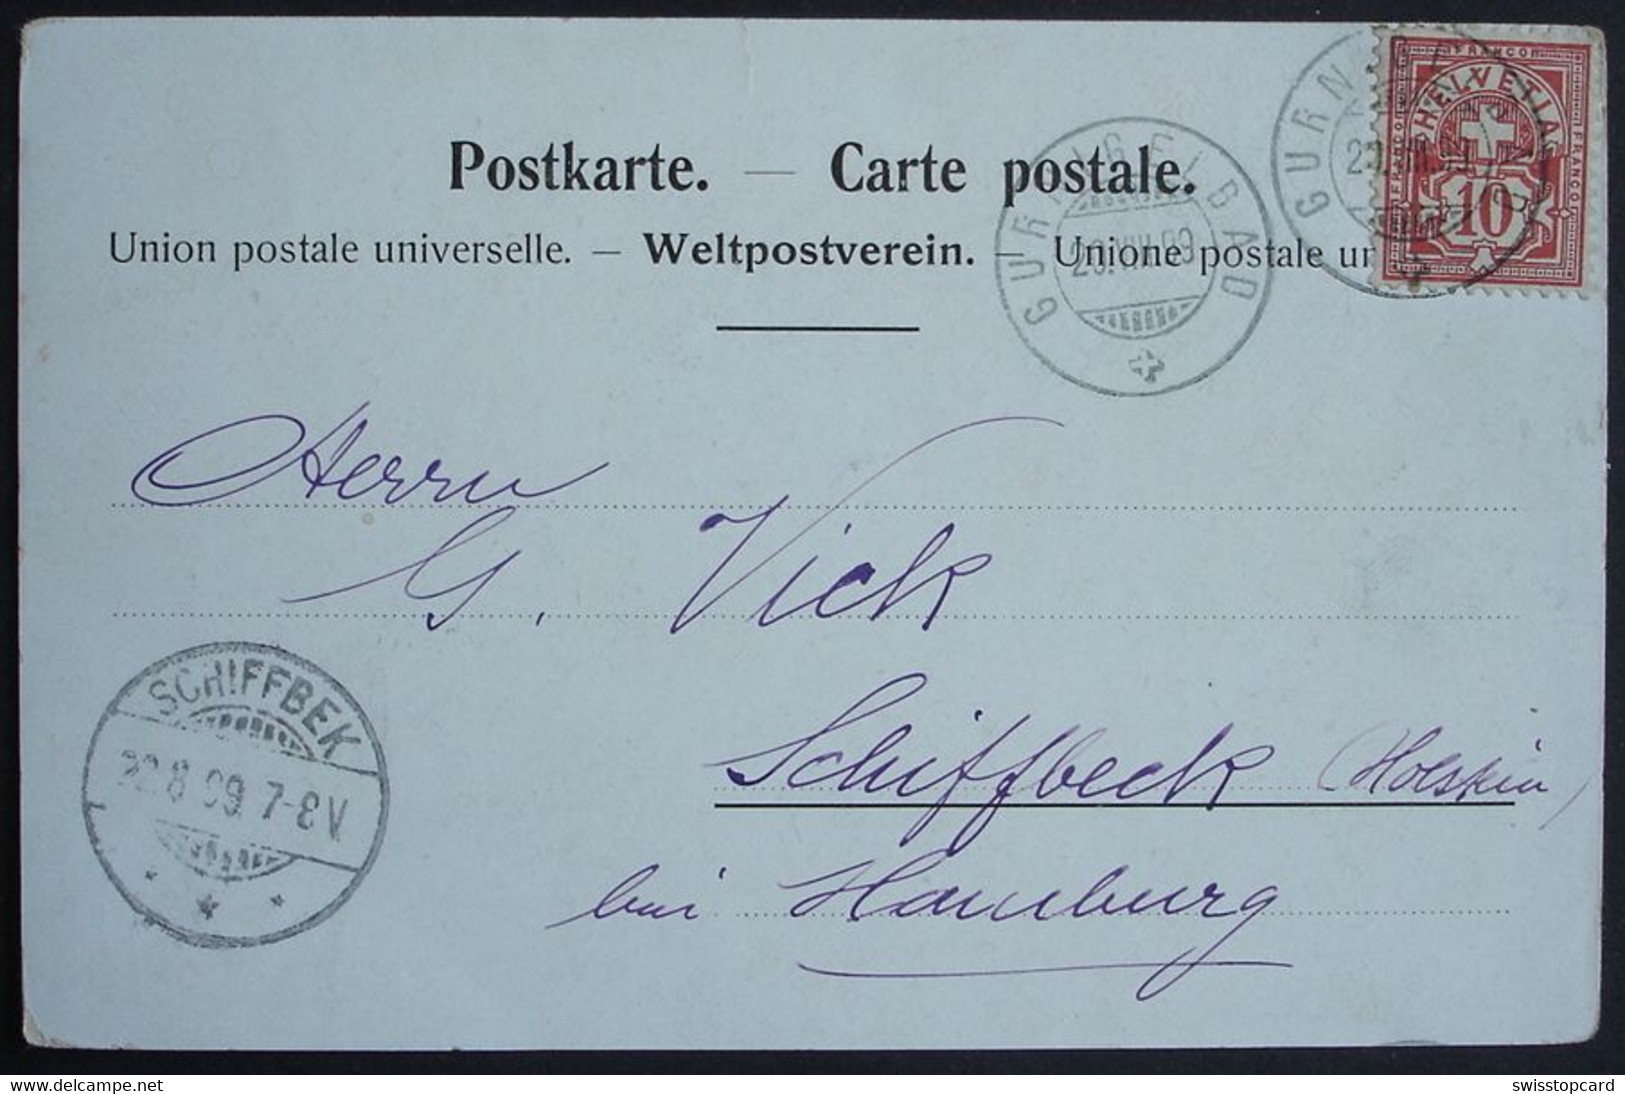 FRANCO
FRANCO
FRANCO
HELVETIA
10
GURNIGELBAD
20.VIII.99
Postkarte. — Carte postale.
Union postale universelle. — Weltpostverein. — Unione postale un
Herrn
G. Vick
Schiffbeck (Holstein)
bei Hamburg
SCHIFFBEK
22.8.99.7-8V
www.delcampe.net
swisstopcard